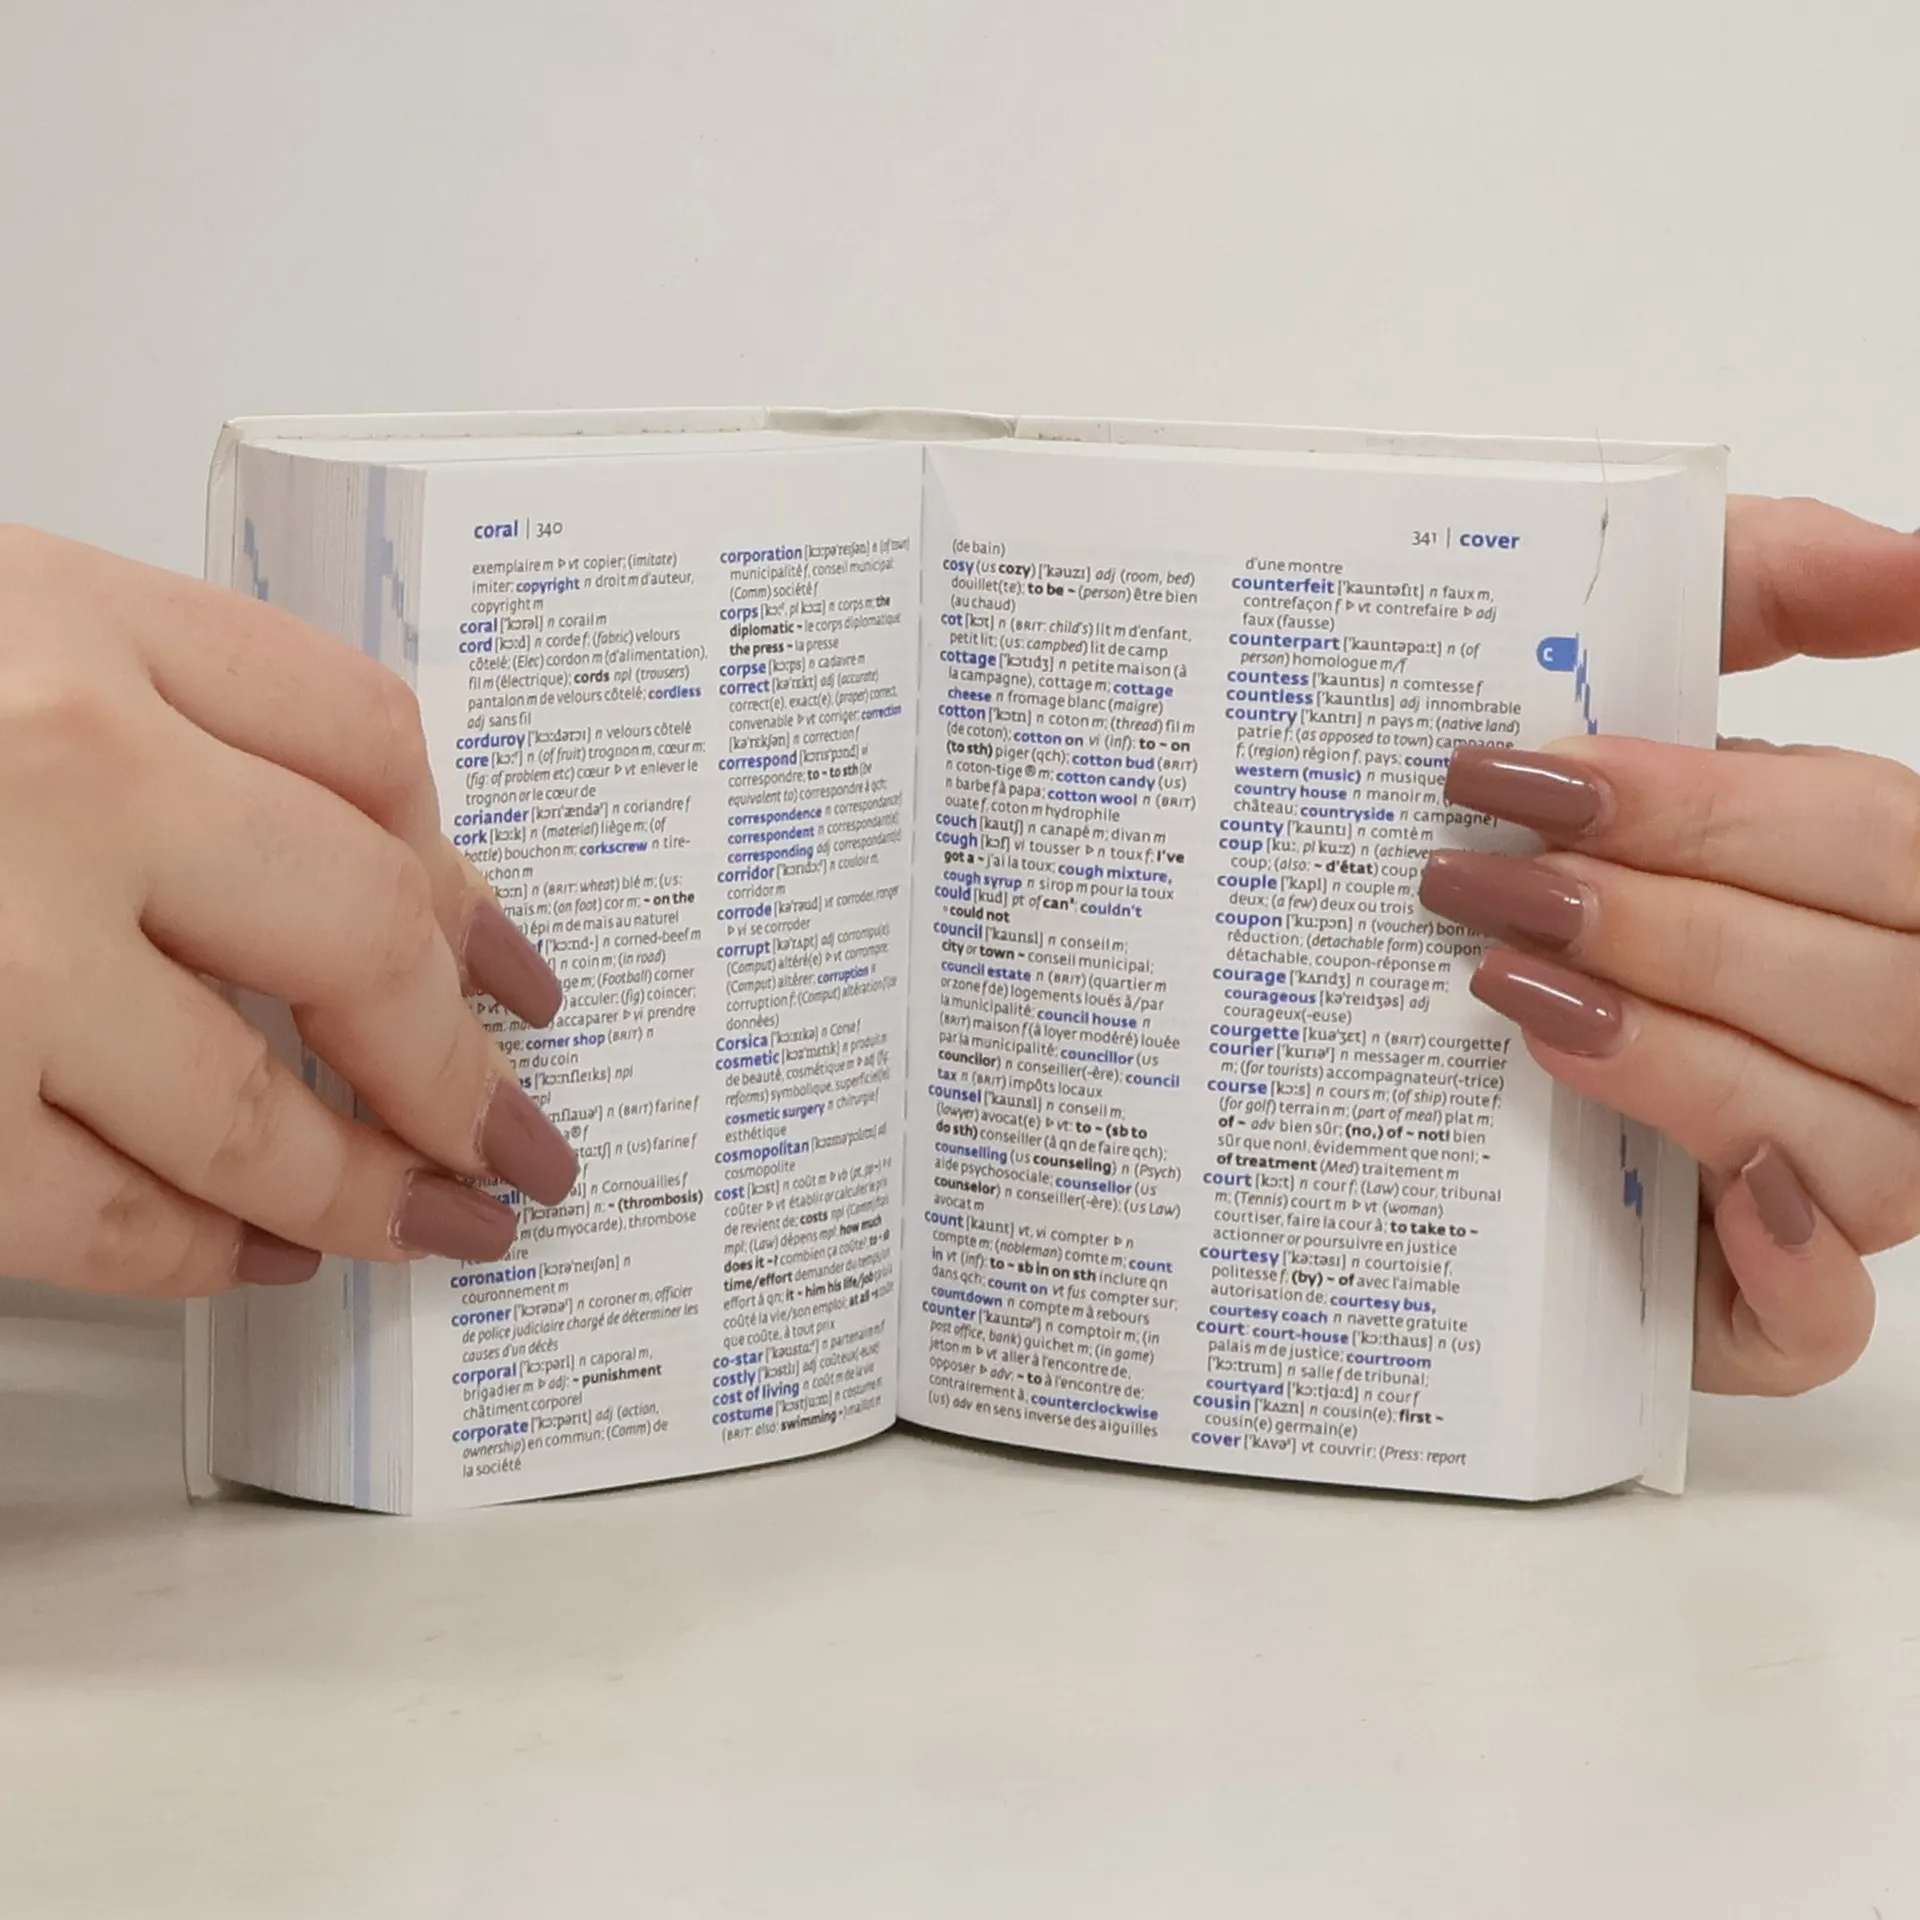 coral | 340
exemplaire m ▷ vt copier; (imitate)
imiter; copyright n droit m d'auteur,
copyright m
coral ['kɔrəl] n corail m
cord [kɔːd] n corde f; (fabric) velours
côtelé; (Elec) cordon m (d'alimentation),
fil m (électrique); cords npl (trousers)
pantalon m de velours côtelé; cordless
adj sans fil
corduroy ['kɔːdərɔɪ] n velours côtelé
core [kɔːʳ] n (of fruit) trognon m, cœur m;
(fig: of problem etc) cœur ▷ vt enlever le
trognon or le cœur de
coriander [kɔrɪ'ændəʳ] n coriandre f
cork [kɔːk] n (material) liège m; (of
bottle) bouchon m; corkscrew n tire-
bouchon m
[kɔːn] n (BRIT: wheat) blé m; (US:
maïs m; (on foot) cor m; ~ on the
épi m de maïs au naturel
['kɔːnd-] n corned-beef m
n coin m; (in road)
m; (Football) corner
acculer; (fig) coincer;
accaparer ▷ vi prendre
corner shop (BRIT) n
m du coin
['kɔːnfleɪks] npl
n (BRIT) farine f
n (US) farine f
n Cornouailles f
n: ~ (thrombosis)
m (du myocarde), thrombose
coronation [kɔrə'neɪʃən] n
couronnement m
coroner ['kɔrənəʳ] n coroner m, officier
de police judiciaire chargé de déterminer les
causes d'un décès
corporal ['kɔːpərl] n caporal m,
brigadier m ▷ adj: ~ punishment
châtiment corporel
corporate ['kɔːpərɪt] adj (action,
ownership) en commun; (Comm) de
la société
corporation [kɔːpə'reɪʃən] n (of town)
municipalité f, conseil municipal;
(Comm) société f
corps [kɔːʳ, pl kɔːz] n corps m; the
diplomatic ~ le corps diplomatique;
the press ~ la presse
corpse [kɔːps] n cadavre m
correct [kə'rɛkt] adj (accurate)
correct(e), exact(e); (proper) correct,
convenable ▷ vt corriger; correction
[kə'rɛkʃən] n correction f
correspond [kɔrɪs'pɔnd] vi
correspondre; to ~ to sth (be
equivalent to) correspondre à qch;
correspondence n correspondance f
correspondent n correspondant(e);
corresponding adj correspondant(e)
corridor ['kɔrɪdɔːʳ] n couloir m,
corridor m
corrode [kə'rəud] vt corroder, ronger
▷ vi se corroder
corrupt [kə'rʌpt] adj corrompu(e);
(Comput) altéré(e) ▷ vt corrompre;
(Comput) altérer; corruption n
corruption f; (Comput) altération f (de
données)
Corsica ['kɔːsɪkə] n Corse f
cosmetic [kɔz'mɛtɪk] n produit m
de beauté, cosmétique m ▷ adj (fig:
reforms) symbolique, superficiel(le)
cosmetic surgery n chirurgie f
esthétique
cosmopolitan [kɔzmə'pɔlɪtn] adj
cosmopolite
cost [kɔst] n coût m ▷ vb (pt, pp ~) ▷ vi
coûter ▷ vt établir or calculer le prix
de revient de; costs npl (Comm) frais
mpl; (Law) dépens mpl; how much
does it ~? combien ça coûte?; to ~ sb
time/effort demander du temps/un
effort à qn; it ~ him his life/job ça lui a
coûté la vie/son emploi; at all ~s coûte
que coûte, à tout prix
co-star ['kəustɑːʳ] n partenaire m/f
costly ['kɔstlɪ] adj coûteux(-euse)
cost of living n coût m de la vie
costume ['kɔstjuːm] n costume m;
(BRIT: also: swimming ~) maillot m
341 | cover
(de bain)
cosy (US cozy) ['kəuzɪ] adj (room, bed)
douillet(te); to be ~ (person) être bien
(au chaud)
cot [kɔt] n (BRIT: child's) lit m d'enfant,
petit lit; (US: campbed) lit de camp
cottage ['kɔtɪdʒ] n petite maison (à
la campagne), cottage m; cottage
cheese n fromage blanc (maigre)
cotton ['kɔtn] n coton m; (thread) fil m
(de coton); cotton on vi (inf): to ~ on
(to sth) piger (qch); cotton bud (BRIT)
n coton-tige® m; cotton candy (US)
n barbe f à papa; cotton wool n (BRIT)
ouate f, coton m hydrophile
couch [kautʃ] n canapé m; divan m
cough [kɔf] vi tousser ▷ n toux f; I've
got a ~ j'ai la toux; cough mixture,
cough syrup n sirop m pour la toux
could [kud] pt of can²; couldn't
= could not
council ['kaunsl] n conseil m;
city or town ~ conseil municipal;
council estate n (BRIT) (quartier m
or zone f de) logements loués à/par
la municipalité; council house n
(BRIT) maison f (à loyer modéré) louée
par la municipalité; councillor (US
councilor) n conseiller(-ère); council
tax n (BRIT) impôts locaux
counsel ['kaunsl] n conseil m;
(lawyer) avocat(e) ▷ vt: to ~ (sb to
do sth) conseiller (à qn de faire qch);
counselling (US counseling) n (Psych)
aide psychosociale; counsellor (US
counselor) n conseiller(-ère); (US Law)
avocat m
count [kaunt] vt, vi compter ▷ n
compte m; (nobleman) comte m; count
in vt (inf): to ~ sb in on sth inclure qn
dans qch; count on vt fus compter sur;
countdown n compte m à rebours
counter ['kauntəʳ] n comptoir m; (in
post office, bank) guichet m; (in game)
jeton m ▷ vt aller à l'encontre de,
opposer ▷ adv: ~ to à l'encontre de;
contrairement à; counterclockwise
(US) adv en sens inverse des aiguilles
d'une montre
counterfeit ['kauntəfɪt] n faux m,
contrefaçon f ▷ vt contrefaire ▷ adj
faux (fausse)
counterpart ['kauntəpɑːt] n (of
person) homologue m/f
countess ['kauntɪs] n comtesse f
countless ['kauntlɪs] adj innombrable
country ['kʌntrɪ] n pays m; (native land)
patrie f; (as opposed to town) campagne
f; (region) région f, pays;
western (music) n musique
country house n manoir m,
château; countryside n campagne f
county ['kauntɪ] n comté m
coup [kuː, pl kuːz] n
coup; (also: ~ d'état) coup
couple ['kʌpl] n couple m;
deux; (a few) deux ou trois
coupon ['kuːpɔn] n (voucher) bon m
réduction; (detachable form) coupon
détachable, coupon-réponse m
courage ['kʌrɪdʒ] n courage m;
courageous [kə'reɪdʒəs] adj
courageux(-euse)
courgette [kuə'ʒɛt] n (BRIT) courgette f
courier ['kurɪəʳ] n messager m, courrier
m; (for tourists) accompagnateur(-trice)
course [kɔːs] n cours m; (of ship) route f;
(for golf) terrain m; (part of meal) plat m;
of ~ adv bien sûr; (no,) of ~ not! bien
sûr que non!, évidemment que non!; ~
of treatment (Med) traitement m
court [kɔːt] n cour f; (Law) cour, tribunal
m; (Tennis) court m ▷ vt (woman)
courtiser, faire la cour à; to take to ~
actionner or poursuivre en justice
courtesy ['kəːtəsɪ] n courtoisie f,
politesse f; (by) ~ of avec l'aimable
autorisation de; courtesy bus,
courtesy coach n navette gratuite
court: court-house ['kɔːthaus] n (US)
palais m de justice; courtroom
['kɔːtrum] n salle f de tribunal;
courtyard ['kɔːtjɑːd] n cour f
cousin ['kʌzn] n cousin(e); first ~
cousin(e) germain(e)
cover ['kʌvəʳ] vt couvrir; (Press: report
C